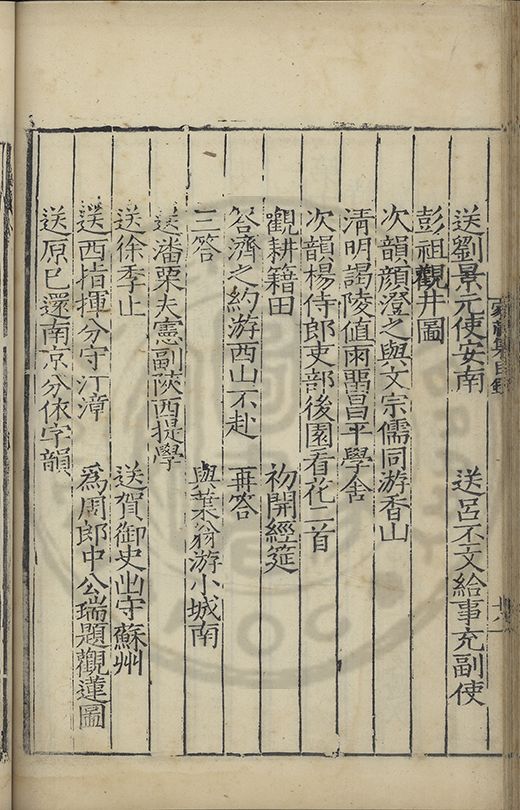 家藏集目錄
廿八
送劉景元使安南　送呂丕文給事充副使
彭祖觀井圖
次韻顏澄之與文宗儒同游香山
清明謁陵值雨畱昌平學舍
次韻楊侍郎吏部後園看花二首
觀耕籍田　初開經筵
答濟之約游西山不赴　再答
三答　與葉翁游小城南
送潘栗夫憲副陝西提學
送徐季止　送賀御史出守蘇州
送西指揮分守汀漳　為周郎中公瑞題觀蓮圖
送原已還南京分依字韻